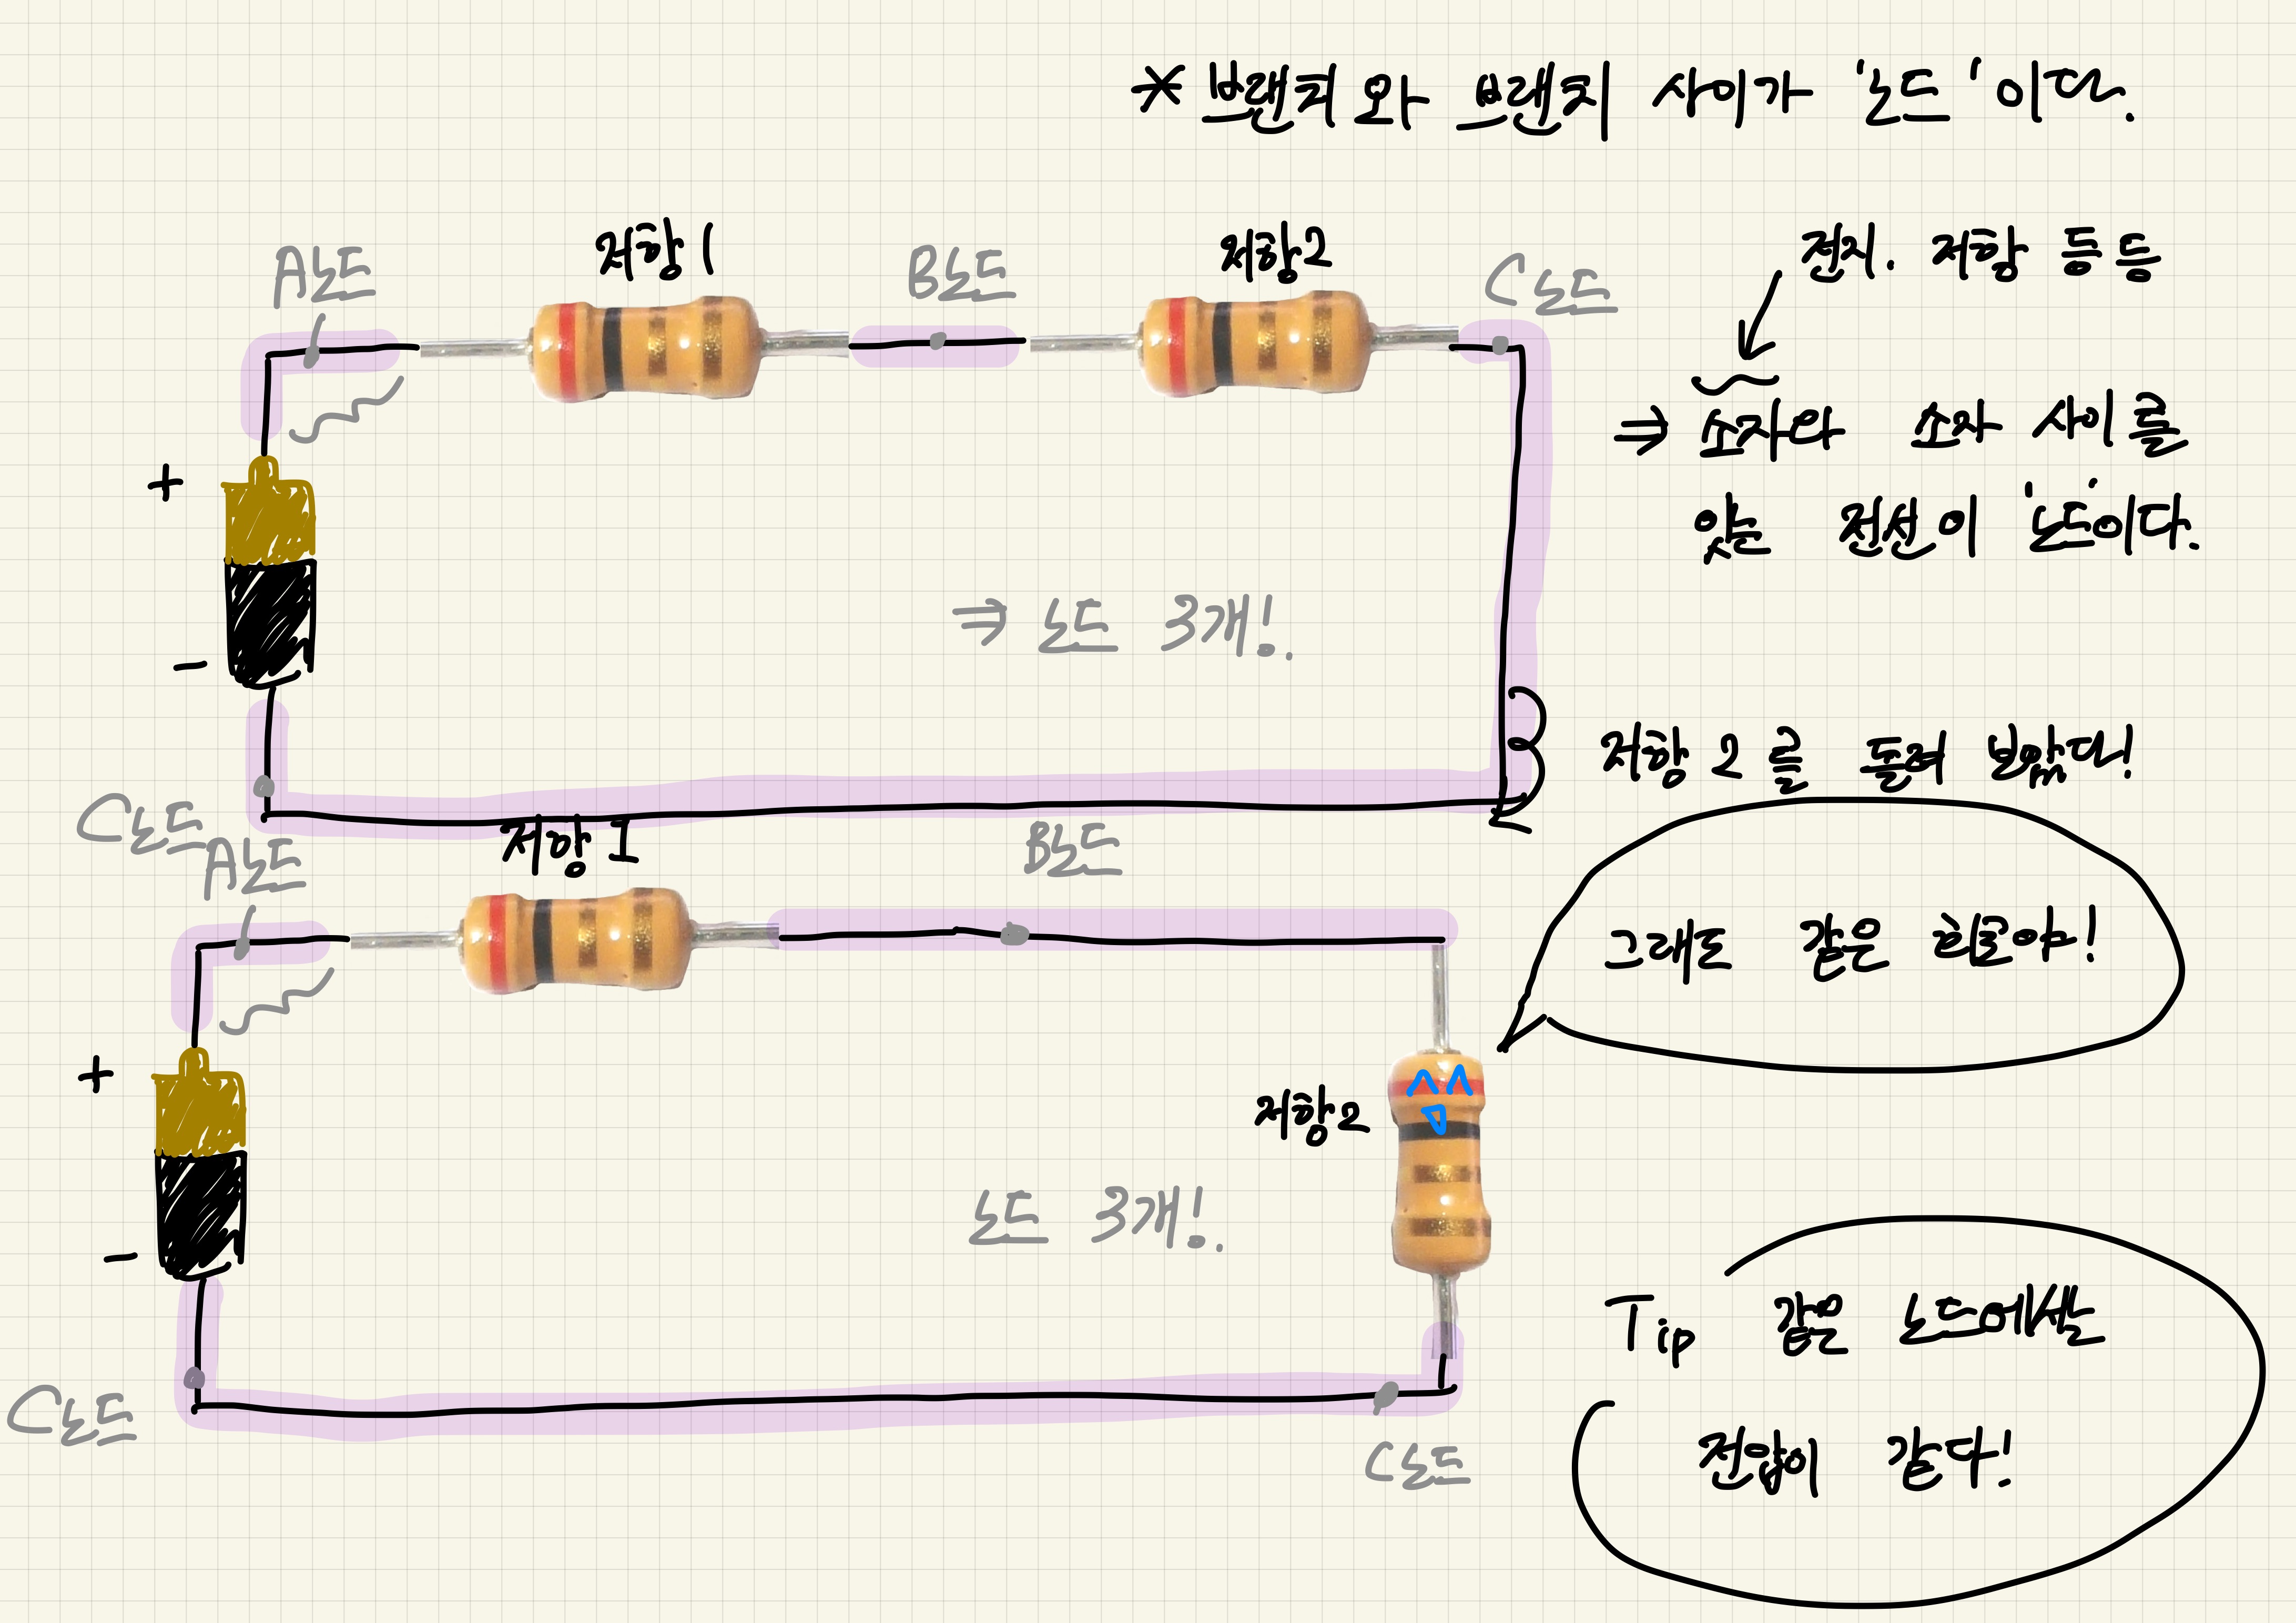 * 브랜치와 브랜치 사이가 '노드'이다.
A노드
저항1
B노드
저항2
C노드
전지. 저항 등등
⇒ 소자와 소자 사이를
잇는 전선이 '노드'이다.
+
-
⇒ 노드 3개!.
C노드
저항 2를 돌려 보았다!
A노드
저항 1
B노드
그래도 같은 회로야!
+
-
저항2
노드 3개!.
C노드
C노드
Tip 같은 노드에서는
전압이 같다!